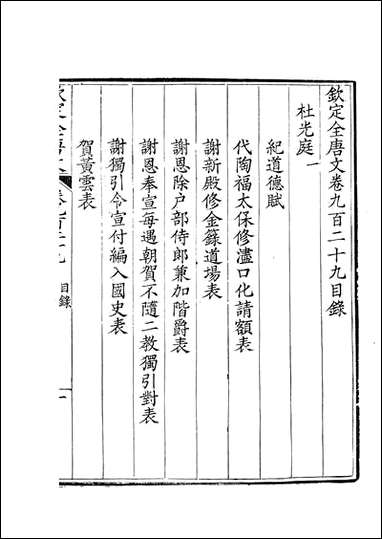 欽定全唐文卷九百二十九目錄
杜光庭一
紀道德賦
代陶福太保修濜口化請額表
謝新殿修金籙道場表
謝恩除戶部侍郎兼加階爵表
謝恩奉宣每遇朝賀不隨二教獨引對表
謝獨引令宣付編入國史表
賀黃雲表
目錄
一